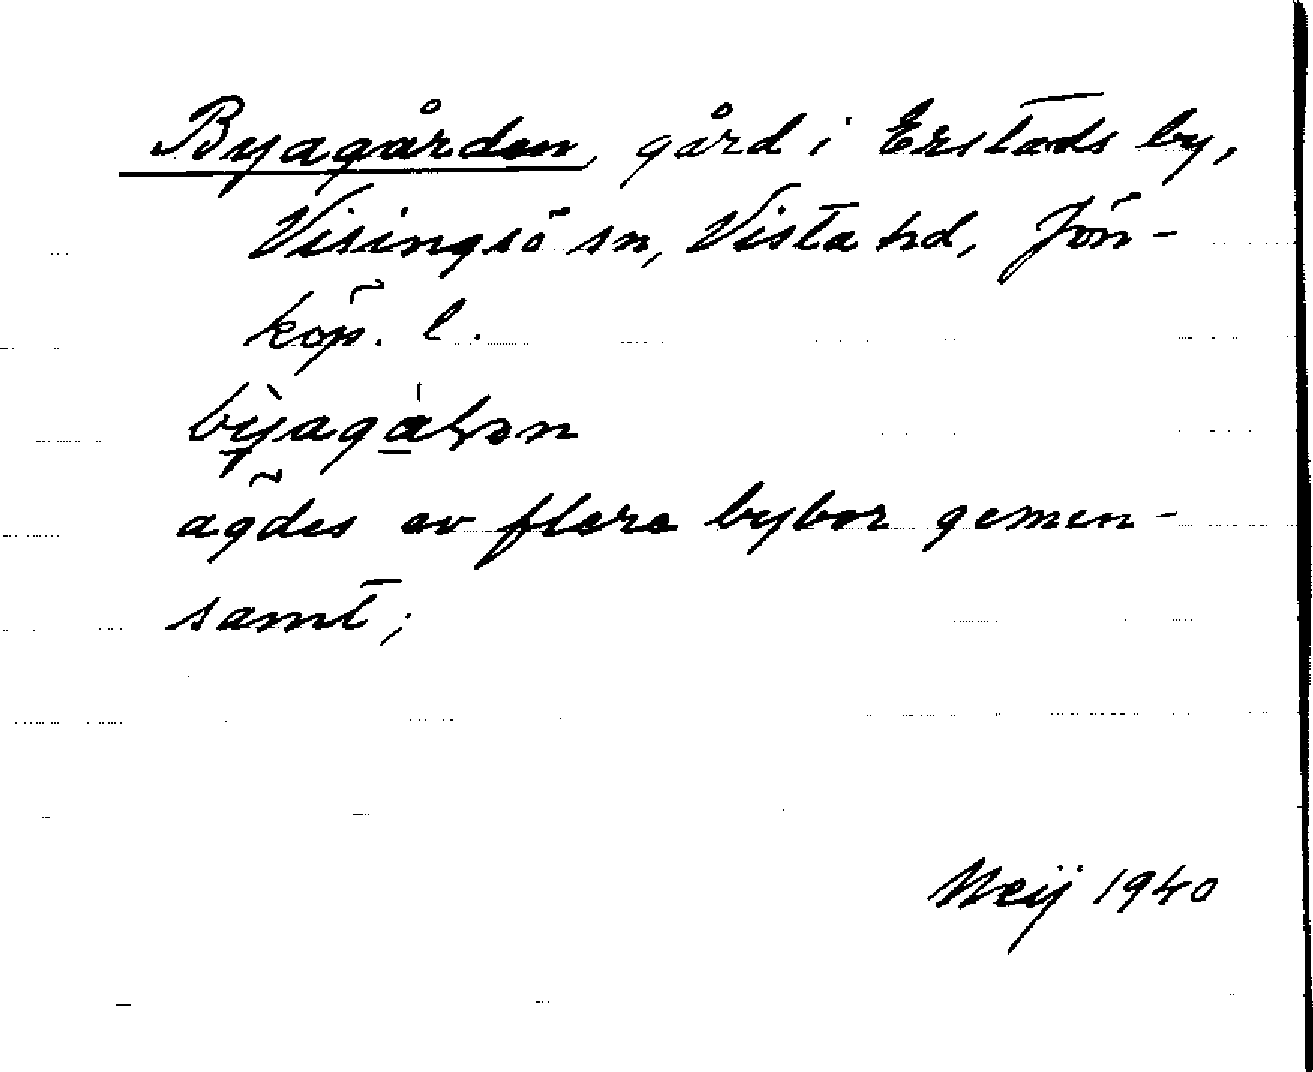 Byagården, gård i Erstads by,
Visingsö sn, Vista hd, Jön-
köp. l.
ägdes av flera bybor gemen-
samt;
Meij 1940